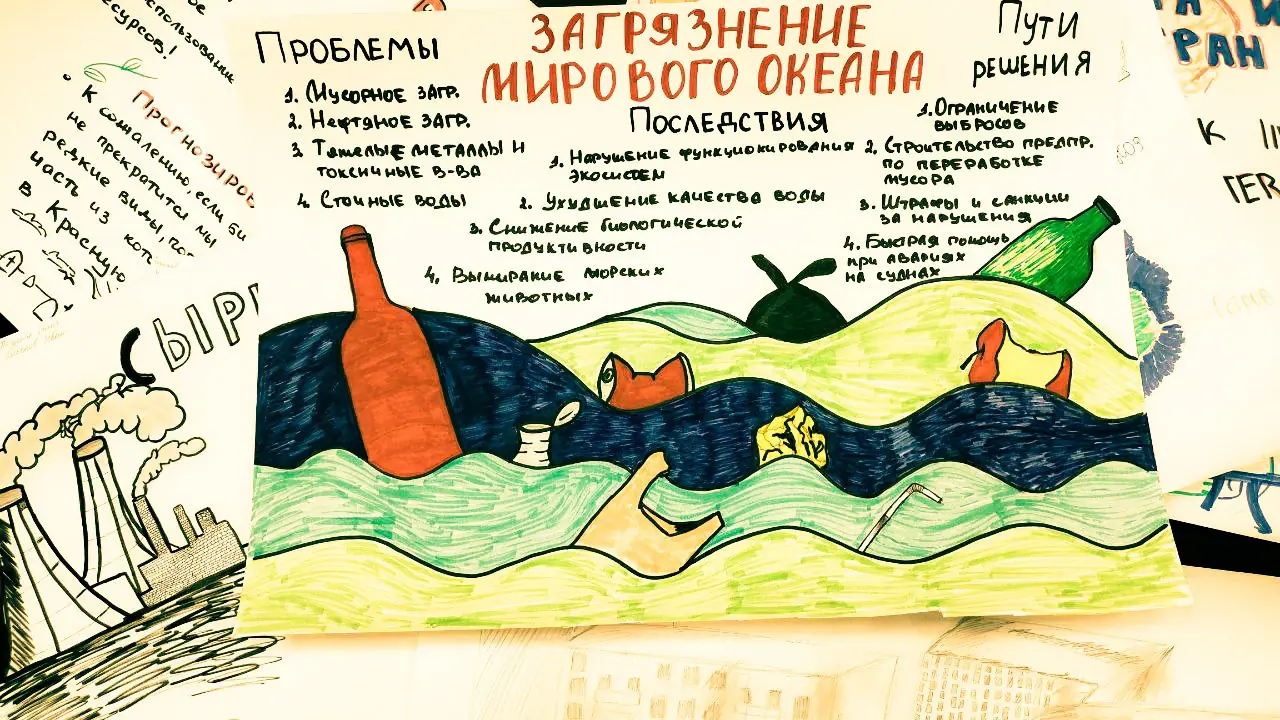 ЗАГРЯЗНЕНИЕ
МИРОВОГО ОКЕАНА
ПРОБЛЕМЫ
1. МУСОРНОЕ ЗАГР.
2. НЕФТЯНОЕ ЗАГР.
3. ТЯЖЕЛЫЕ МЕТАЛЛЫ И
ТОКСИЧНЫЕ В-ВА
4. СТОЧНЫЕ ВОДЫ
ПОСЛЕДСТВИЯ
1. НАРУШЕНИЕ ФУНКЦИОНИРОВАНИЯ
ЭКОСИСТЕМ
2. УХУДШЕНИЕ КАЧЕСТВА ВОДЫ
3. СНИЖЕНИЕ БИОЛОГИЧЕСКОЙ
ПРОДУКТИВНОСТИ
4. ВЫМИРАНИЕ МОРСКИХ
ЖИВОТНЫХ
ПУТИ
РЕШЕНИЯ
1. ОГРАНИЧЕНИЕ
ВЫБРОСОВ
2. СТРОИТЕЛЬСТВО ПРЕДПР.
ПО ПЕРЕРАБОТКЕ
МУСОРА
3. ШТРАФЫ И САНКЦИИ
ЗА НАРУШЕНИЯ
4. БЫСТРАЯ ПОМОЩЬ
ПРИ АВАРИЯХ
НА СУДНАХ
ИСПОЛЬЗОВАНИЕ
РЕСУРСОВ!
ПРОГНОЗИРОВ
• К СОЖАЛЕНИЮ, ЕСЛИ БИ
НЕ ПРЕКРАТИТСЯ МЫ
РЕДКИЕ ВИДЫ, ПО
ЧАСТЬ ИЗ КОТ
В КРАСНУЮ
СЫРЬ
РАН
К